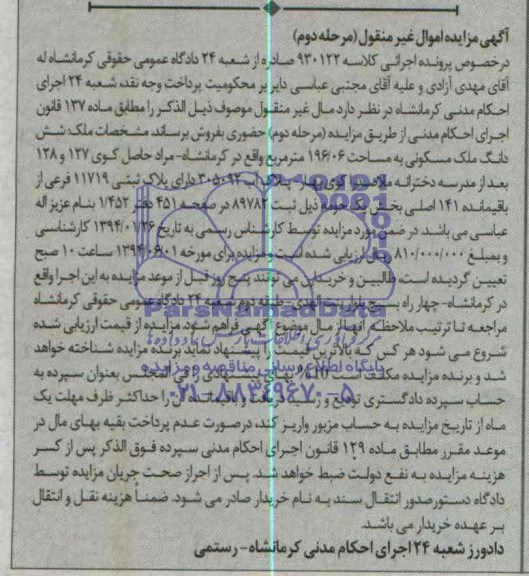 آگهی مزایده اموال غیر منقول (مرحله دوم)
درخصوص پرونده اجرائی کلاسه ۹۳۰۱۲۲ صادره از شعبه ۲۴ دادگاه عمومی حقوقی کرمانشاه له
آقای مهدی آزادی و علیه آقای مجتبی عباسی دایر بر محکومیت پرداخت وجه نقد، شعبه ۲۴ اجرای
احکام مدنی کرمانشاه در نظر دارد مال غیر منقول موصوف ذیل الذکر را مطابق ماده ۱۳۷ قانون
اجرای احکام مدنی از طریق مزایده (مرحله دوم) حضوری بفروش برساند، مشخصات ملک: شش
دانگ ملک مسکونی به مساحت ۱۹۶/۰۶ مترمربع واقع در کرمانشاه- مراد حاصل کوی ۱۲۷ و ۱۲۸
بعد از مدرسه دخترانه ملاصدرا کوی بهار- پلاک آب ۳۰۵۰۹۲ دارای پلاک ثبتی ۱۱۷۱۹ فرعی از
باقیمانده ۱۴۱ اصلی بخش یک حومه ذیل ثبت ۸۹۷۸۲ در صفحه ۴۵۱ دفتر ۱/۴۵۲ بنام عزیز اله
عباسی می باشد. در ضمن مورد مزایده توسط کارشناس رسمی به تاریخ ۱۳۹۴/۰۱/۲۶ کارشناسی
و بمبلغ ۸۱۰/۰۰۰/۰۰۰ ریال ارزیابی شده است و مزایده برای مورخه ۱۳۹۴/۰۶/۰۱ ساعت ۱۰ صبح
تعیین گردیده است، طالبین و خریداران می توانند پنج روز قبل از موعد مزایده به این اجرا واقع
در کرمانشاه- چهار راه بسیج بلوار بنت الهدی- طبقه دوم شعبه ۲۴ دادگاه عمومی حقوقی کرمانشاه
مراجعه تا ترتیب ملاحظه آنها از مال موضوع آگهی فراهم شود. مزایده از قیمت ارزیابی شده
شروع می شود هر کس که بالاترین قیمت را پیشنهاد نماید برنده مزایده شناخته خواهد
شد و برنده مزایده مکلف است ۱۰٪ بهای پیشنهادی را فی المجلس بعنوان سپرده به
حساب سپرده دادگستری تودیع و رسید دریافت و باقیمانده آن را حداکثر ظرف مهلت یک
ماه از تاریخ مزایده به حساب مزبور واریز کند، درصورت عدم پرداخت بقیه بهای مال در
موعد مقرر مطابق ماده ۱۲۹ قانون اجرای احکام مدنی سپرده فوق الذکر پس از کسر
هزینه مزایده به نفع دولت ضبط خواهد شد. پس از احراز صحت جریان مزایده توسط
دادگاه دستور صدور انتقال سند به نام خریدار صادر می شود. ضمناً هزینه نقل و انتقال
بر عهده خریدار می باشد.
دادورز شعبه ۲۴ اجرای احکام مدنی کرمانشاه- رستمی
ParsNamadData
پایگاه اطلاع رسانی مناقصه و مزایده
۰۲۱-۸۸۳۴۹۶۷۰-۵